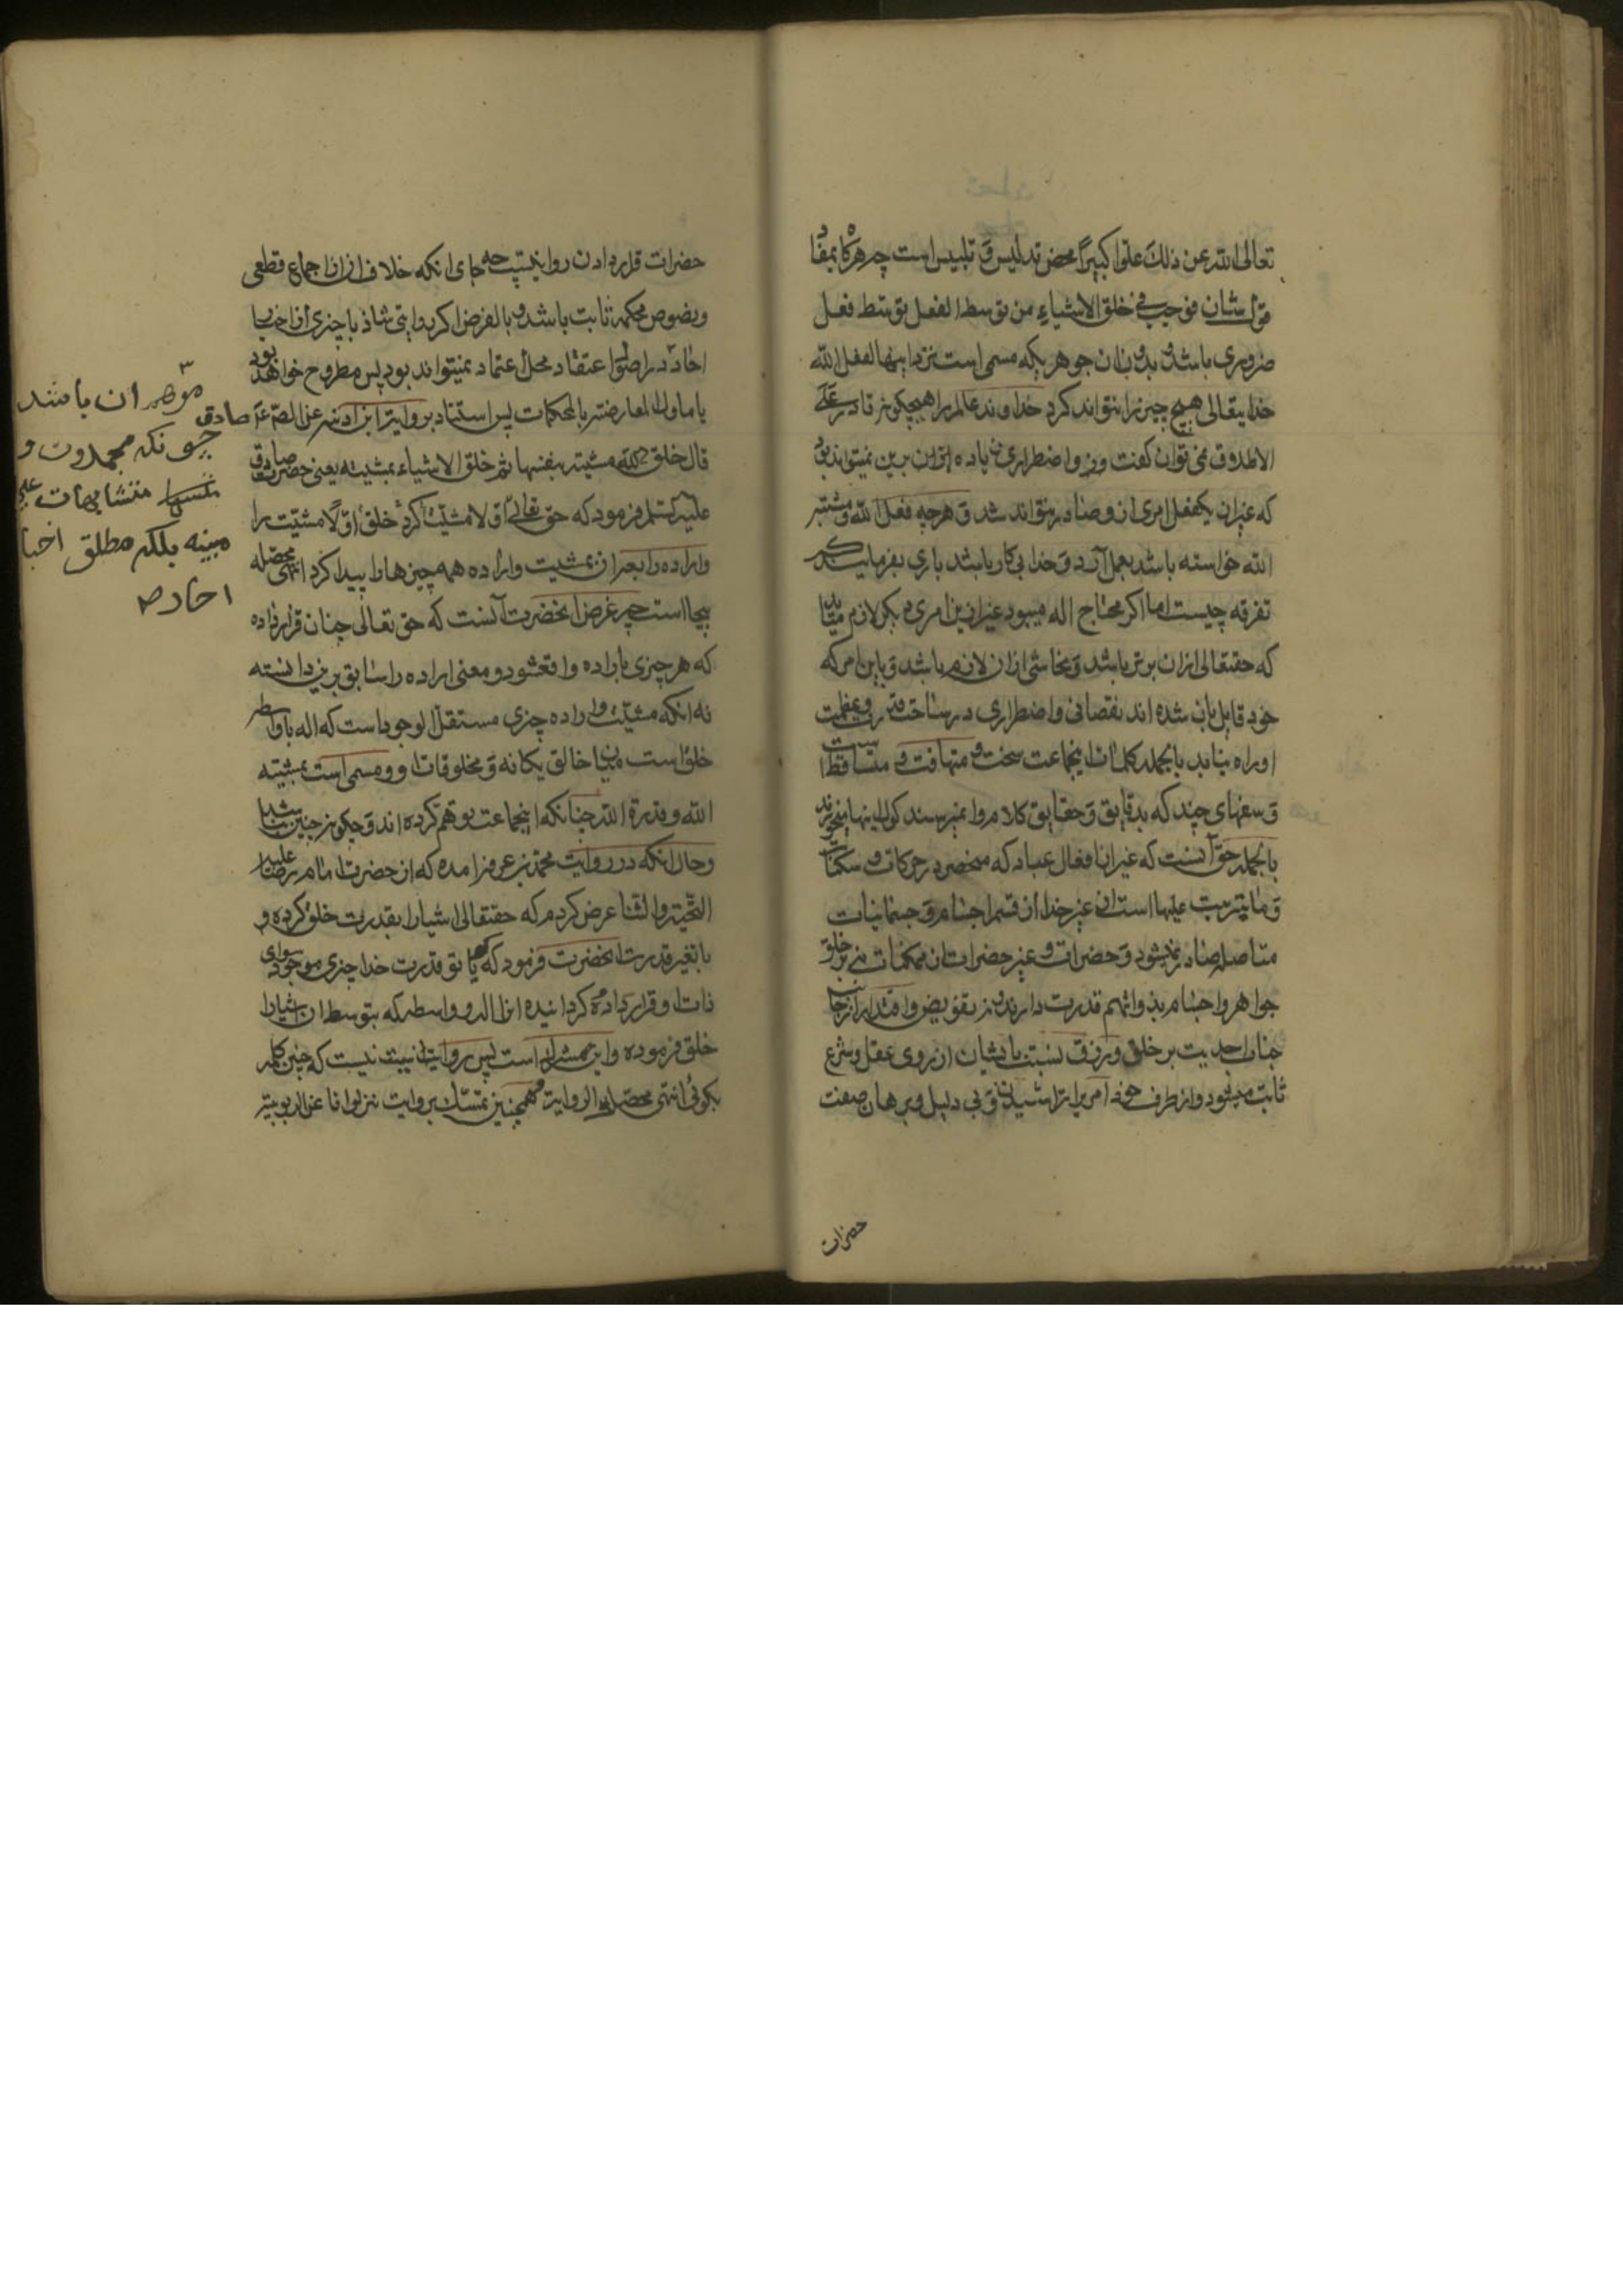 تعالی الله عن ذلک علوا کبیرا محض تدلیس و تلبیس است چه هرگاه بمفاد
قول شان فوجب فی خلق الاشیاء من توسط الفعل توسط فعل
ضروری باشد و بدون ان جوهریکه مسمی است نزد اینها لفعل الله
خدایتعالی هیچ چیز را نتواند کرد خداوند عالم را هیچگونه قادر علی
الاطلاق نمی توان گفت وزو اضطراری زیاده ازین نمیتواند بود
که غیر ان یکفعل امری ازو صادر نتواند شد و هرچه فعل الله و مشیته
الله خواسته باشد بعمل آرد و خدا بی کار باشد باری بفرمایند که
تفرقه چیست اما اگر محتاج اله میبود غیر ازین امری دیگر لازم میاید
که حقتعالی ازان برتر باشد و تحاشی ازان لازم باشد و باین امر که
خود قابل بان شده اند نقصانی و اضطراری در ساحت عزت و عظمت
او راه نیابد بالجمله کلمات اینجماعت سخت متهافت و متساقط است
و سفهای چند که بدقایق و حقایق کلام وا نمیرسند گول اینها میخورند
بالجمله حق آنست که غیر از افعال عباد که منحصر در حرکات و سکنات
و ما یترتب علیها است از غیر خدا از قسم اجسام و جسمانیات
متاصله صادر نمیشود و حضرات و غیر حضرات از ممکنات نه بر خلق
جواهر و اجسام بذواتهم قدرت دارند و نه تفویض و اقتدار از جانب
جناب احدیت بر خلق و رزق نسبت بایشان از روی عقل و شرع
ثابت میشود و از طرف خود امری را تراشیدن و بی دلیل و برهان صفت
حضرات
حضرات قرار دادن روا نیست چه جای انکه خلاف ازان اجماع قطعی
و نصوص محکمه ثابت باشد و بالفرض اگر روایتی شاذ یا چیزی از اخبار
احاد در اصول اعتقاد محل اعتماد نمیتواند بود پس مطروح خواهد بود
یا ماول لمعارضته بالمحکمات پس استناد بروایت ابن اذینه عن الصادق ع
قال خلق الله مشیته بنفسها ثم خلق الاشیاء بمشیته یعنی حضرت صادق
علیه السلم فرمود که حق تعالی اولا مشیت کرد خلق اولا مشیت را
و اراده را بعد ازان بمشیت و اراده همه چیزها را پیدا کرد انتهی محصله
بیجا است چه غرض انحضرت آنست که حق تعالی چنان قرار داده
که هر چیزی باراده واقع شود و معنی اراده را سابق برین دانسته
نه انکه مشیت و اراده چیزی مستقل الوجود است که اله یا واسطه
خلق است میان خالق یگانه و مخلوقات او و مسمی است بمشیته
الله و قدرة الله چنانکه اینجماعت توهم کرده اند و چگونه چنین باشد
و حال انکه در روایت محمد بن عرفه امده که از حضرت امام رضا علیه
التحیة و الثنا عرض کردم که حقتعالی اشیا را بقدرت خلق کرده و
یا بغیر قدرت انحضرت فرمود که گویا تو قدرت خدا چیزی موجود سوای
ذات او قرار داده گردانیده انرا اله و واسطه که بتوسط ان اشیا را
خلق فرموده و این شرک است پس روا نیست که چنین کلمه
بگوئی انتهی محصل الروایة و همچنین تمسک بروایت نزلونا عن الربوبیة
موهم ان باشد
چونکه همچو
متشابهات
مبینه بلکه مطلق اخبار
احاد
صادق